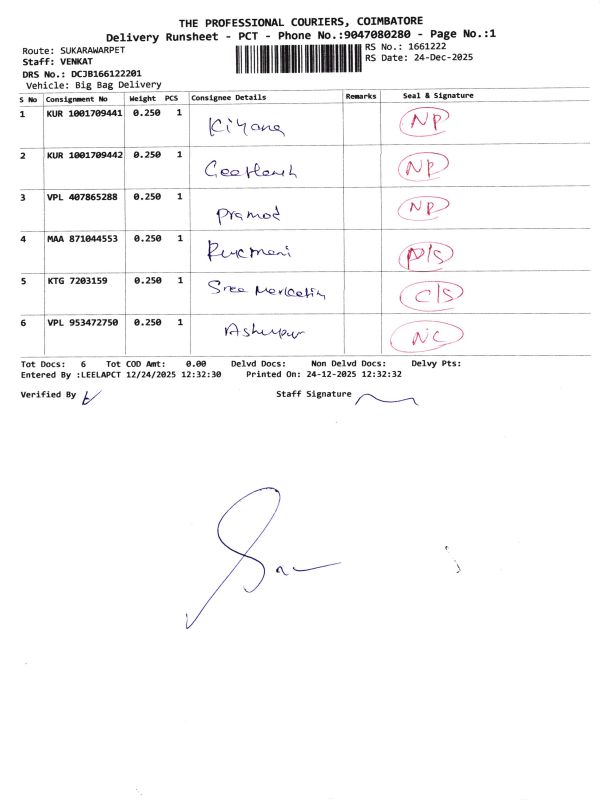 THE PROFESSIONAL COURIERS, COIMBATORE
Delivery Runsheet - PCT - Phone No.:9047080280 - Page No.:1
Route: SUKARAWARPET RS No.: 1661222
Staff: VENKAT RS Date: 24-Dec-2025
DRS No.: DCJB166122201
Vehicle: Big Bag Delivery
S No Consignment No Weight PCS Consignee Details Remarks Seal & Signature
1 KUR 1001709441 0.250 1 Kiyana NP
2 KUR 1001709442 0.250 1 NP
3 VPL 407865288 0.250 1 Pramod NP
4 MAA 871044553 0.250 1 Rukmani D/S
5 KTG 7203159 0.250 1 Sree Marketing C/S
6 VPL 953472750 0.250 1 NC
Tot Docs: 6 Tot COD Amt: 0.00 Delvd Docs: Non Delvd Docs: Delvy Pts:
Entered By :LEELAPCT 12/24/2025 12:32:30 Printed On: 24-12-2025 12:32:32
Verified By Staff Signature